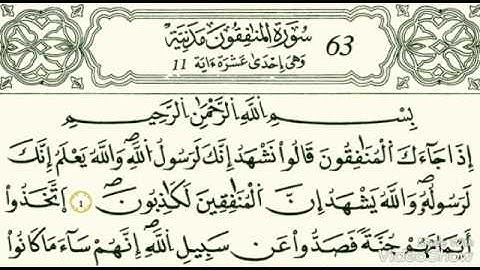 سورة المنفقون مدنية 63
وهى إحدى عشرة ءاية 11
بسم الله الرحمن الرحيم
إذا جاءك المنفقون قالوا نشهد إنك لرسول الله والله يعلم إنك
لرسوله والله يشهد إن المنفقين لكاذبون ١ اتخذوا
أيمانهم جنة فصدوا عن سبيل الله إنهم ساء ما كانوا
VIDEOSHOW